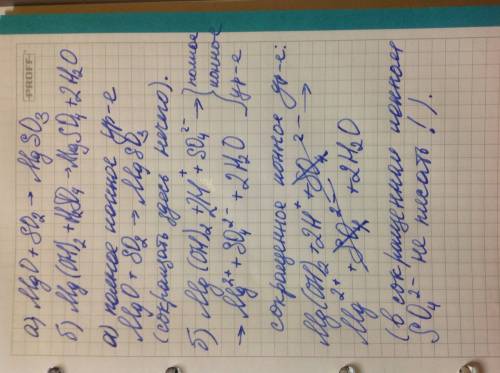 PROFF
а) MgO + SO₂ → MgSO₃
б) Mg(OH)₂ + H₂SO₄ → MgSO₄ + 2H₂O
а) полное ионное ур-е
MgO + SO₂ → MgSO₃
(сокращать здесь нечего).
б) Mg(OH)₂ + 2H⁺ + SO₄²⁻ → } полное
→ Mg²⁺ + SO₄²⁻ + 2H₂O } ионное ур-е
сокращенное ионное ур-е:
Mg(OH)₂ + 2H⁺ + SO₄²⁻ →
Mg²⁺ + SO₄²⁻ + 2H₂O
(в сокращенном ионном
SO₄²⁻ не писать!).